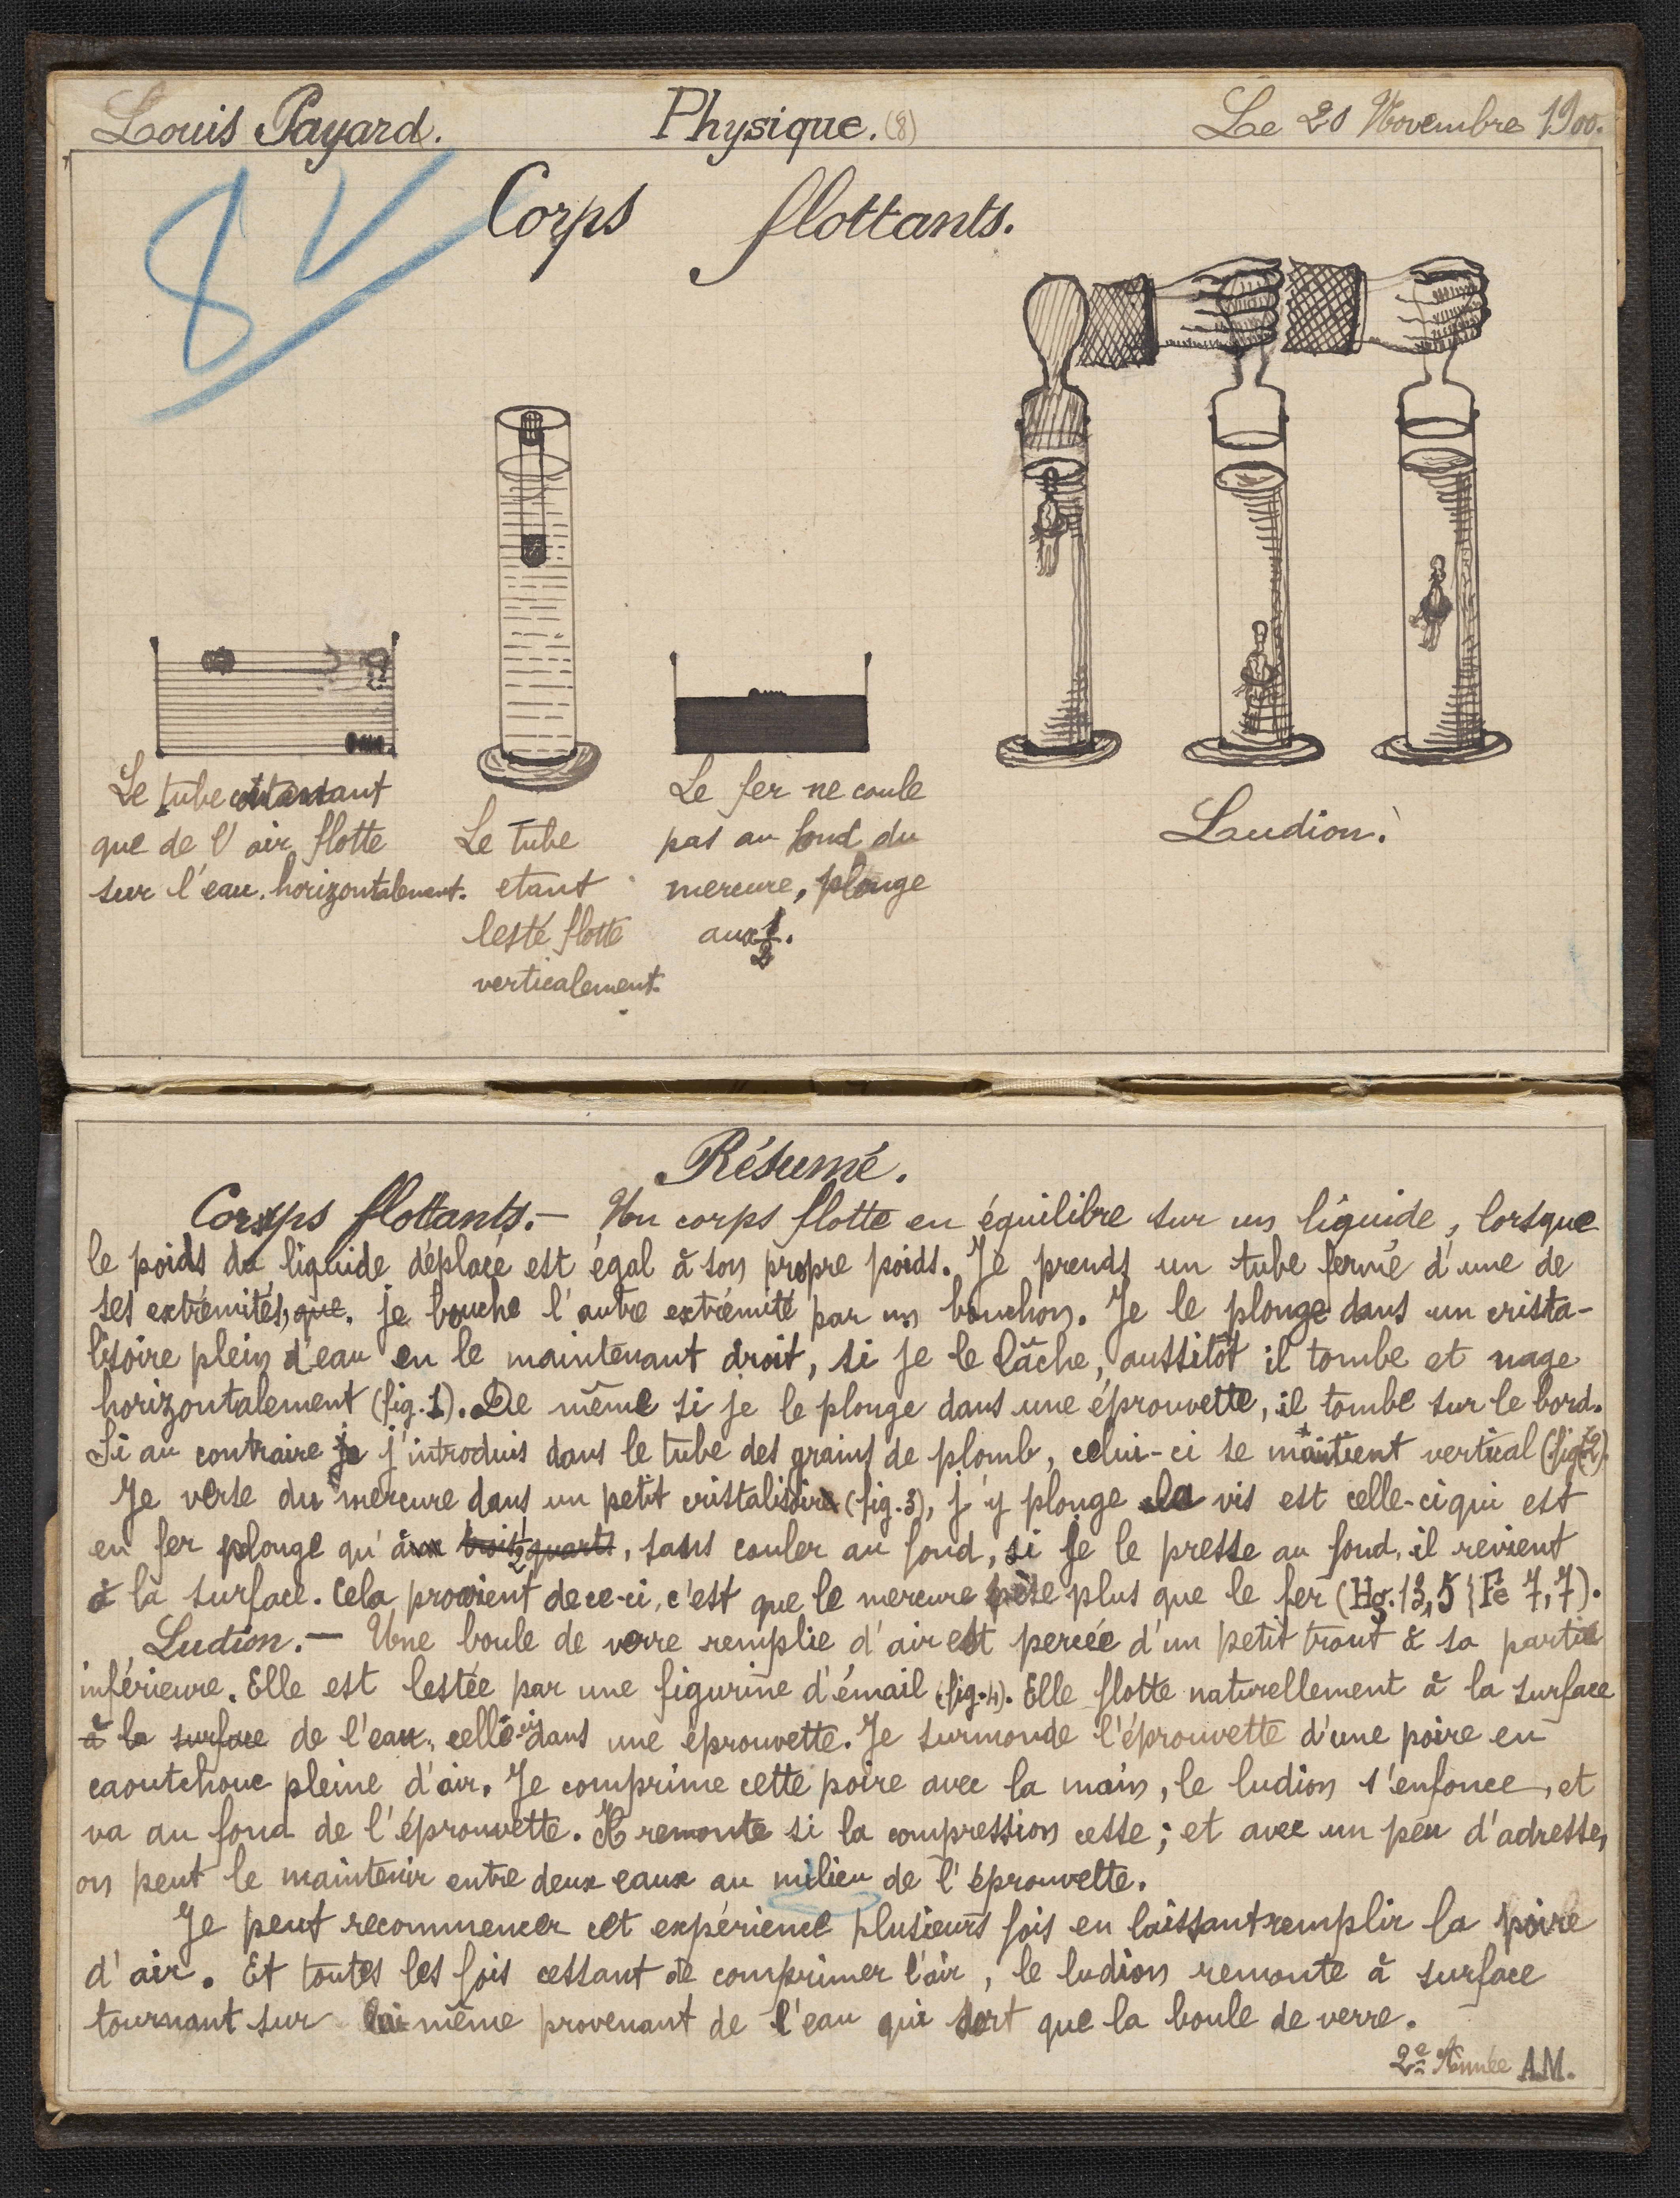 Louis Payard. Physique. (8) Le 20 Novembre 1900.
8
Corps flottants.
Le tube contenant
que de l'air flotte
sur l'eau. horizontalement.
Le tube
etant
lesté flotte
verticalement.
Le fer ne coule
pas au fond du
mercure, plonge
aux 1/2.
Ludion.
Résumé.
Corps flottants. — Un corps flotte en équilibre sur un liquide, lorsque
le poids du liquide déplacé est égal à son propre poids. Je prends un tube fermé d'une de
ses extrémités, que. je bouche l'autre extrémité par un bouchon. Je le plonge dans un crista-
lisoire plein d'eau en le maintenant droit, si je le lâche, aussitôt il tombe et nage
horizontalement (fig. 1). De même si je le plonge dans une éprouvette, il tombe sur le bord.
Si au contraire je j'introduis dans le tube des grains de plomb, celui-ci se maintient vertical (fig. 2).
Je verse du mercure dans un petit cristalisoire (fig. 3), j'y plonge la vis est celle-ci qui est
en fer plonge qu'à trois quarts 1/2, sans couler au fond, si je le presse au fond, il revient
à la surface. Cela provient de ce-ci, c'est que le mercure pèse plus que le fer (Hg. 13,5 { Fe 7,7).
Ludion. — Une boule de verre remplie d'air est percée d'un petit trout à sa partie
inférieure. Elle est lestée par une figurine d'émail (fig. 4). Elle flotte naturellement à la surface
à la surface de l'eau, celle-ci dans une éprouvette. Je surmonde l'éprouvette d'une poire en
caoutchouc pleine d'air. Je comprime cette poire avec la main, le ludion s'enfonce, et
va au fond de l'éprouvette. Il remonte si la compression cesse ; et avec un peu d'adresse,
on peut le maintenir entre deux eaux au milieu de l'éprouvette.
Je peut recommencer cet expérience plusieurs fois en laissant remplir la poire
d'air. Et toutes les fois cessant de comprimer l'air, le ludion remonte à surface
tournant sur lui même provenant de l'eau qui sort que la boule de verre.
2e Année A.M.